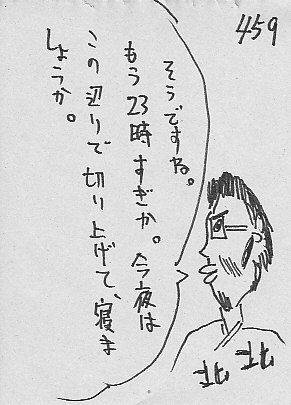 459
そうですね。
もう23時すぎか。今夜は
この辺りで切り上げて、寝ま
しょうか。
北 北